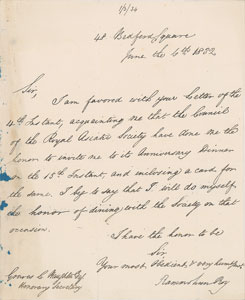 1/3/24
48 Bedford Square
June the 6th 1832
Sir,
I am favored with your letter of the
4th Instant, acquainting me that the Council
of the Royal Asiatic Society have done me the
honor to invite me to its Anniversary Dinner
on the 15th Instant, and enclosing a card for
the same. I beg to say that I will do myself
the honor of dining with the Society on that
occasion.
I have the honor to be
Sir
Your most Obedient & very humble
Rammohun Roy
Graves C. Haughton Esq
Honorary Secretary